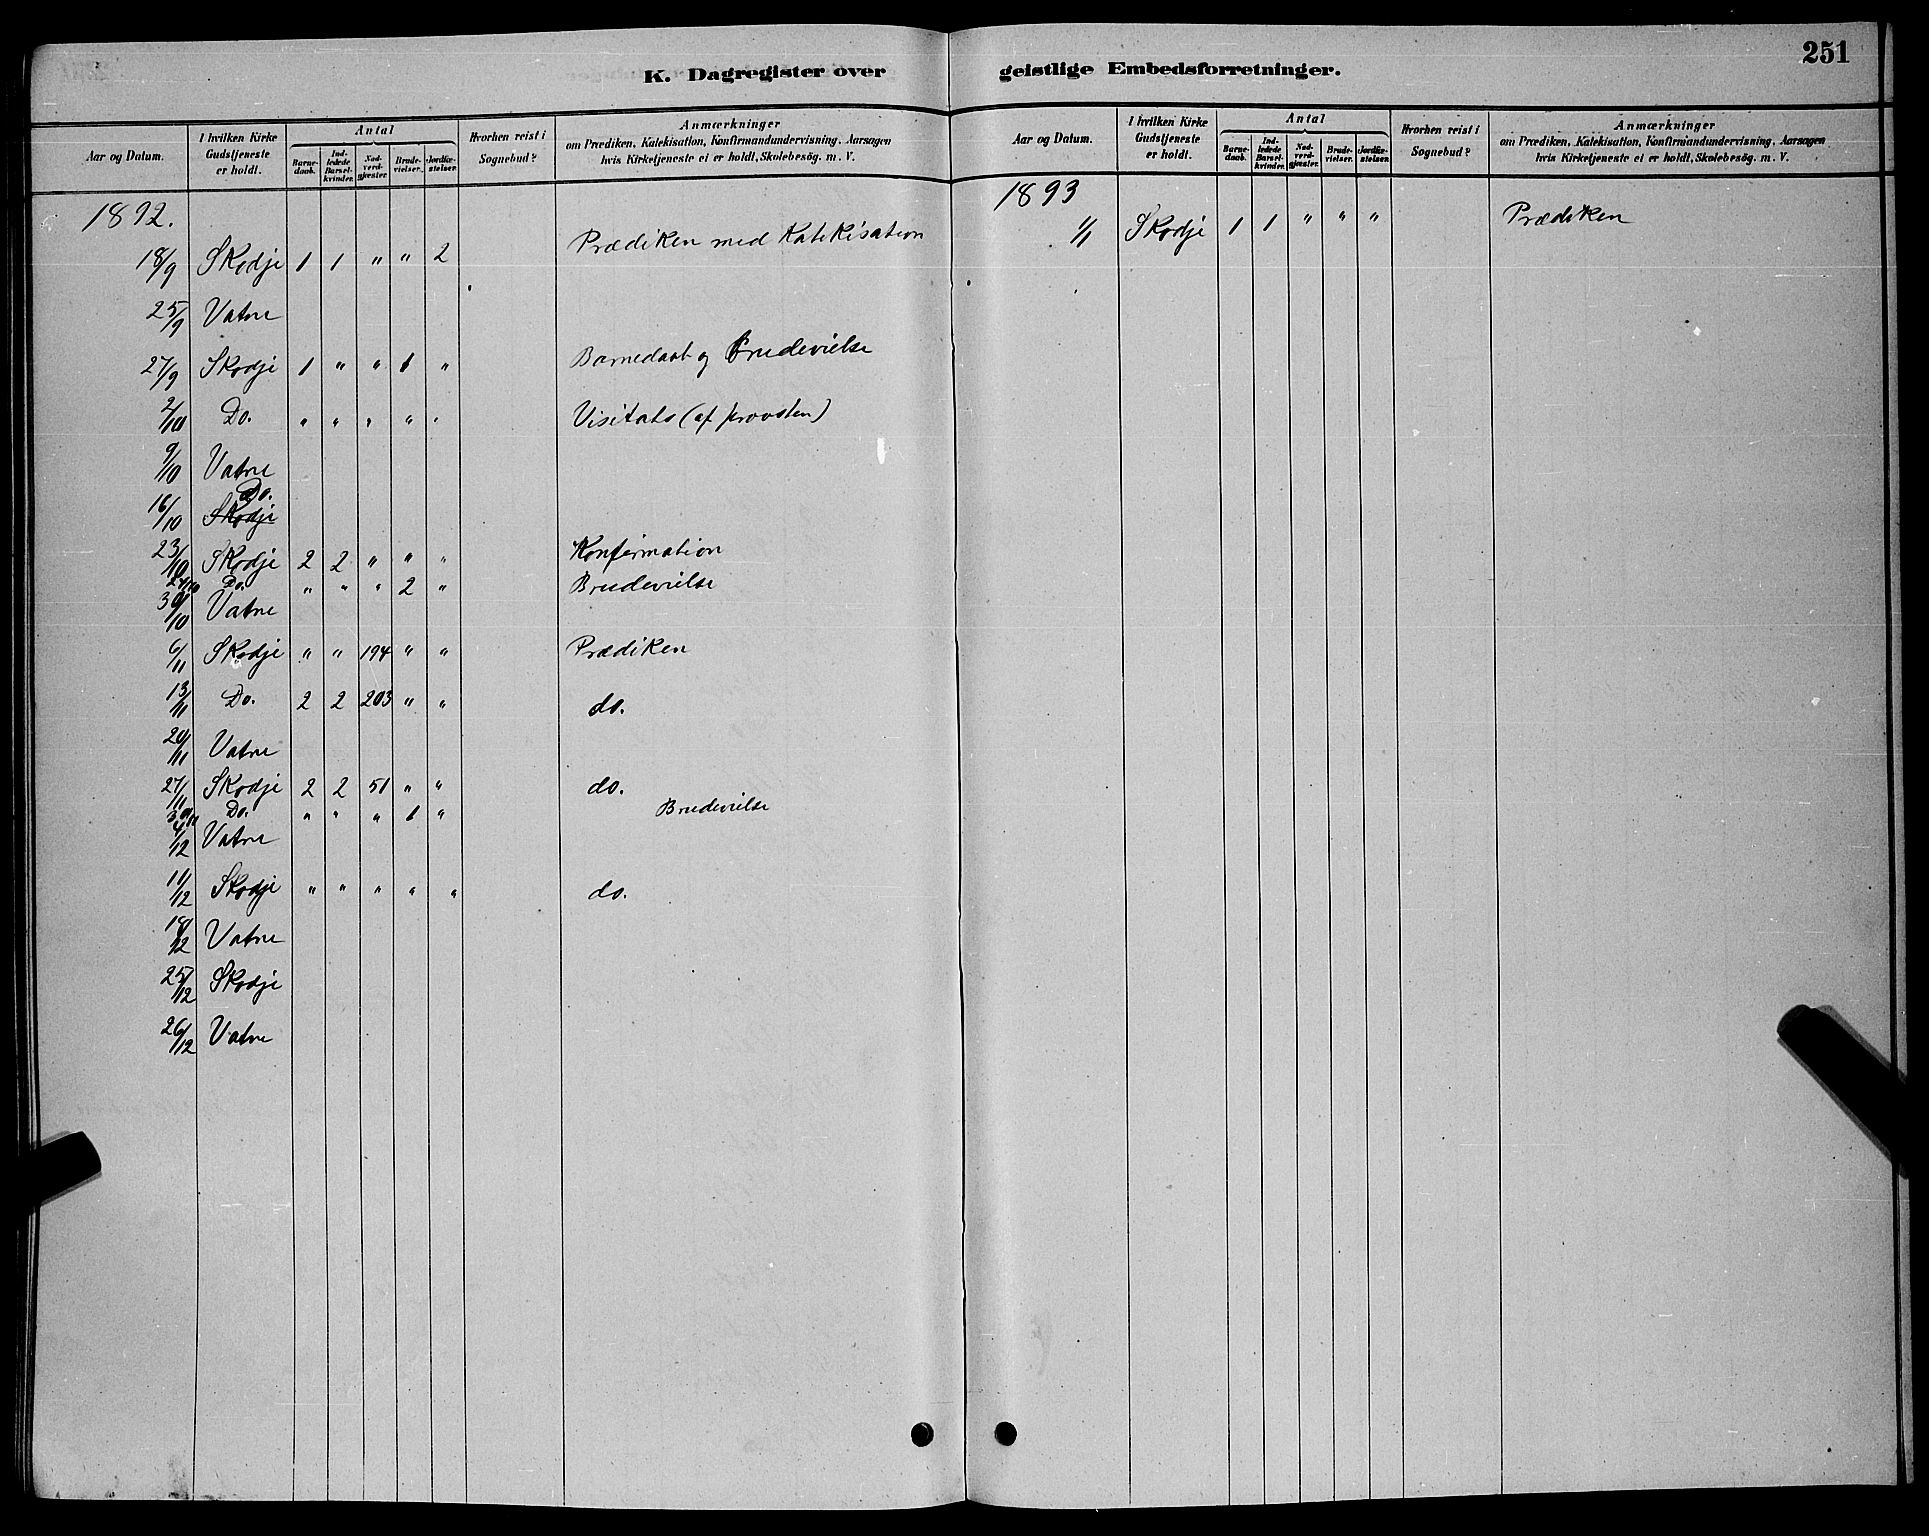 251
K. Dagregister over geistlige Embedsforretninger.
Aar og Datum.
I hvilken Kirke Gudstjeneste er holdt.
Antal
Barne-daab.
Ind-ledede Barsel-kvinder.
Nad-verd-gjæster.
Brude-vielser.
Jordfæ-stelser.
Hvorhen reist i Sognebud?
Anmærkninger
om Prædiken, Katekisation, Konfirmandundervisning, Aarsagen
hvis Kirketjeneste ei er holdt, Skolebesög. m. V.
1892.
18/9 Skodje 1 1 " " 2 Prædiken med Katekisation
25/9 Vatne
27/9 Skodje 1 " " 1 " Barnedaab og Brudevielse
2/10 Do. " " " " " Visitats (af provsten)
9/10 Vatne
Do.
16/10 Skodje
23/10 Skodje 2 2 " " " Konfirmation
27/10 Do. " " " 2 " Brudevielse
30/10 Vatne
6/11 Skodje " " 194 " " Prædiken
13/11 Do. 2 2 203 " " do.
20/11 Vatne
27/11 Skodje 2 2 51 " " do.
30/11 Do. " " " 1 " Brudevielse
4/12 Vatne
11/12 Skodje " " " " " do.
18/12 Vatne
25/12 Skodje
26/12 Vatne
Aar og Datum.
I hvilken Kirke Gudstjeneste er holdt.
Antal
Barne-daab.
Ind-ledede Barsel-kvinder.
Nad-verd-gjæster.
Brude-vielser.
Jordfæ-stelser.
Hvorhen reist i Sognebud?
Anmærkninger
om Prædiken, Katekisation, Konfirmandundervisning, Aarsagen
hvis Kirketjeneste ei er holdt, Skolebesög. m. V.
1893
1/1 Skodje 1 1 " " " Prædiken